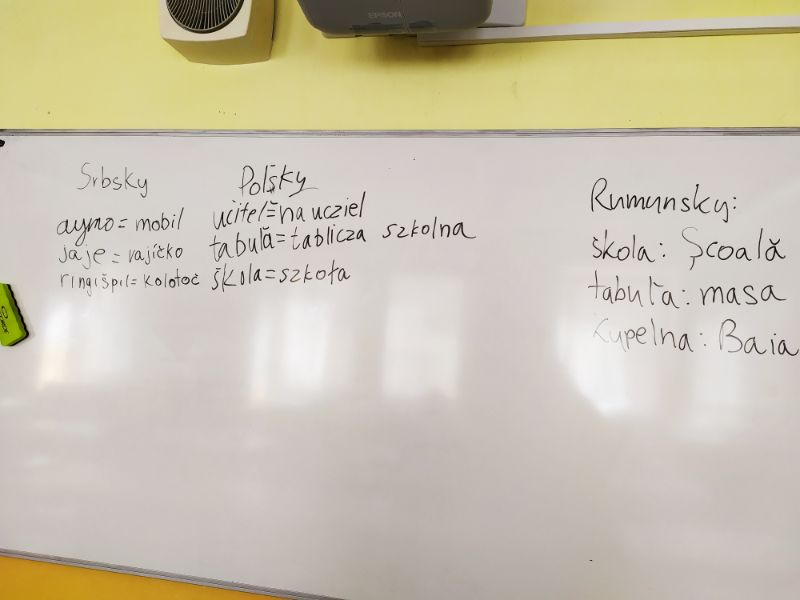 EPSON
Srbsky
ayno = mobil
jaje = vajíčko
ringišpil = kolotoč
Poľsky
učiteľ = na ucziel
tabuľa = tablicza szkolna
škola = szkoła
Rumunsky:
škola: Școală
tabuľa: masa
Kupelna: Baia